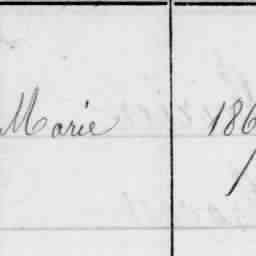 Marie 186